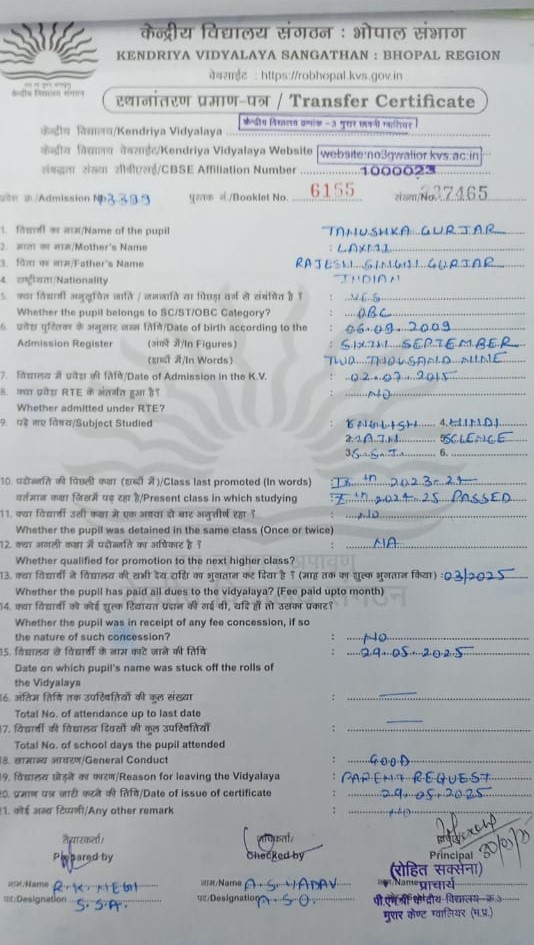 केन्द्रीय विद्यालय संगठन : भोपाल संभाग
KENDRIYA VIDYALAYA SANGATHAN : BHOPAL REGION
वेबसाईट : https://robhopal.kvs.gov.in
केन्द्रीय विद्यालय संगठन
स्थानांतरण प्रमाण-पत्र / Transfer Certificate
केन्द्रीय विद्यालय/Kendriya Vidyalaya केन्द्रीय विद्यालय क्रमांक -3 मुरार छावनी ग्वालियर
केन्द्रीय विद्यालय वेबसाईट/Kendriya Vidyalaya Website website:no3gwalior.kvs.ac.in
संबद्धता संख्या सीबीएसई/CBSE Affiliation Number 1000023
प्रवेश क्र./Admission No. 3399 पुस्तक नं./Booklet No. 6155 संख्या/No. 237465
1. विद्यार्थी का नाम/Name of the pupil TANUSHKA GURJAR
2. माता का नाम/Mother's Name : LAXMI
3. पिता का नाम/Father's Name RAJESH SINGH GURJAR
4. राष्ट्रीयता/Nationality INDIAN
5. क्या विद्यार्थी अनुसूचित जाति / जनजाति या पिछड़ा वर्ग से संबंधित है ? : YES
Whether the pupil belongs to SC/ST/OBC Category? : OBC
6. प्रवेश पुस्तिका के अनुसार जन्म तिथि/Date of birth according to the : 06.09.2009
Admission Register (अंकों में/In Figures) : SIXTH SEPTEMBER
(शब्दों में/In Words) TWO THOUSAND NINE
7. विद्यालय में प्रवेश की तिथि/Date of Admission in the K.V. : 02.07.2015
8. क्या प्रवेश RTE के अंतर्गत हुआ है? : NO
Whether admitted under RTE?
9. पढ़े गए विषय/Subject Studied : ENGLISH 4. HINDI
2. MATH 5. SCIENCE
3. S.S.T. 6.
10. पदोन्नति की पिछली कक्षा (शब्दों में)/Class last promoted (In words) : IX th 2023-24
वर्तमान कक्षा जिसमें पढ़ रहा है/Present class in which studying : X th 2024-25 PASSED
11. क्या विद्यार्थी उसी कक्षा में एक अथवा दो बार अनुत्तीर्ण रहा ? : NO
Whether the pupil was detained in the same class (Once or twice)
12. क्या अगली कक्षा में पदोन्नति का अधिकार है ? : NA
Whether qualified for promotion to the next higher class?
13. क्या विद्यार्थी ने विद्यालय की सभी देय राशि का भुगतान कर दिया है ? (माह तक का शुल्क भुगतान किया) : 03/2025
Whether the pupil has paid all dues to the vidyalaya? (Fee paid upto month)
14. क्या विद्यार्थी को कोई शुल्क रियायत प्रदान की गई थी, यदि हाँ तो उसका प्रकार?
Whether the pupil was in receipt of any fee concession, if so
the nature of such concession? : NO
15. विद्यालय से विद्यार्थी के नाम काटे जाने की तिथि : 29.05.2025
Date on which pupil's name was stuck off the rolls of
the Vidyalaya
16. अंतिम तिथि तक उपस्थितियों की कुल संख्या :
Total No. of attendance up to last date
17. विद्यार्थी की विद्यालय दिवसों की कुल उपस्थितियाँ :
Total No. of school days the pupil attended
18. सामान्य आचरण/General Conduct : GOOD
19. विद्यालय छोड़ने का कारण/Reason for leaving the Vidyalaya : PARENT REQUEST
20. प्रमाण पत्र जारी करने की तिथि/Date of issue of certificate : 29.05.2025
21. कोई अन्य टिप्पणी/Any other remark : NO
तैयारकर्ता/ जाँचकर्ता/
Prepared by Checked by Principal
(रोहित सक्सेना)
नाम/Name R.K. NEGI नाम/Name A.S. YADAV नाम/Name प्राचार्य
पद/Designation S.S.A. पद/Designation A.S.O. पी.एम.श्री केन्द्रीय विद्यालय क्र.3
मुरार केण्ट ग्वालियर (म.प्र.)